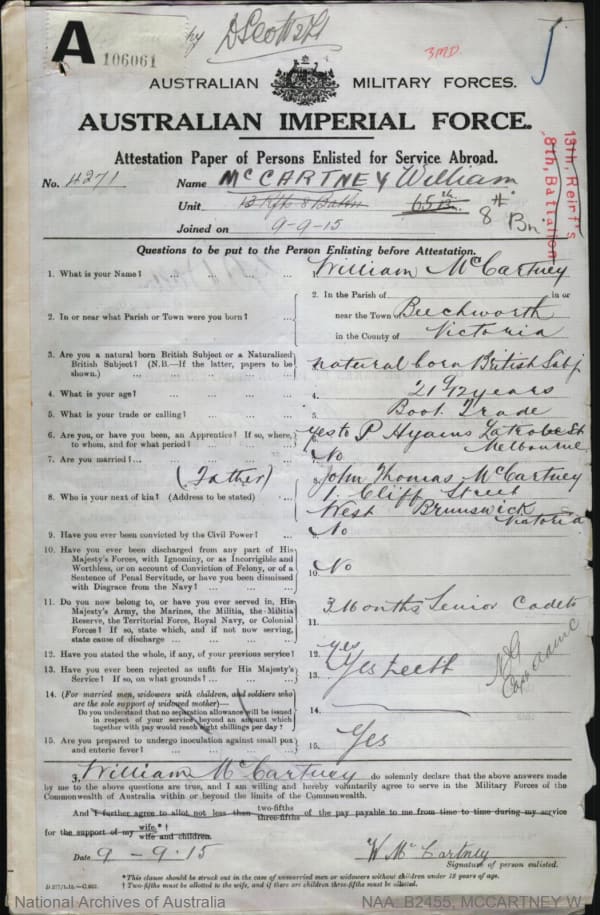 A
106061
by DScott Lt
3MD.
AUSTRALIAN MILITARY FORCES.
AUSTRALIAN IMPERIAL FORCE.
Attestation Paper of Persons Enlisted for Service Abroad.
13th, Reirf's
8th, Battalion
No. 4271 Name McCARTNEY William
Unit 13 Rfts 8 Battn 65th 8th Bn
Joined on 9-9-15
Questions to be put to the Person Enlisting before Attestation.
1. What is your Name? ... ... ... ... William McCartney
2. In or near what Parish or Town were you born? ... 2. In the Parish of in or
near the Town of Beechworth
in the County of Victoria
3. Are you a natural born British Subject or a Naturalized
British Subject? (N.B.—If the latter, papers to be
shown.) ... ... ... ... ... natural born British Subj
4. What is your age? ... ... ... ... 4. 21 9/12 years
5. What is your trade or calling? ... ... ... 5. Boot Trade
6. Are you, or have you been, an Apprentice? If so, where,
to whom, and for what period? ... ... ... yes to P Hyams Latrobe St
Melbourne
7. Are you married? ... ... ... ... 7. No
(Father)
8. Who is your next of kin? (Address to be stated) ... John Thomas McCartney
1 Cliff Street
West Brunswick
Victoria
9. Have you ever been convicted by the Civil Power? ... No
10. Have you ever been discharged from any part of His
Majesty's Forces, with Ignominy, or as Incorrigible and
Worthless, or on account of Conviction of Felony, or of a
Sentence of Penal Servitude, or have you been dismissed
with Disgrace from the Navy? ... ... ... 10. No
11. Do you now belong to, or have you ever served in, His
Majesty's Army, the Marines, the Militia, the Militia
Reserve, the Territorial Force, Royal Navy, or Colonial
Forces? If so, state which, and if not now serving,
state cause of discharge ... ... ... 11. 3 Months Senior Cadets
12. Have you stated the whole, if any, of your previous service? 12. yes
13. Have you ever been rejected as unfit for His Majesty's
Service? If so, on what grounds? ... ... 13. Yes teeth
14. (For married men, widowers with children, and soldiers who
are the sole support of widowed mother)—
Do you understand that no separation allowance will be issued
in respect of your service beyond an amount which
together with pay would reach eight shillings per day? 14.
15. Are you prepared to undergo inoculation against small pox
and enteric fever? ... ... ... ... 15. Yes
I, William McCartney do solemnly declare that the above answers made
by me to the above questions are true, and I am willing and hereby voluntarily agree to serve in the Military Forces of the
Commonwealth of Australia within or beyond the limits of the Commonwealth.
And I further agree to allot not less than two-fifths three-fifths of the pay payable to me from time to time during my service
for the support of my wife.*† wife and children.
Date 9-9-15 W McCartney
Signature of person enlisted.
*This clause should be struck out in the case of unmarried men or widowers without children under 18 years of age.
† Two-fifths must be allotted to the wife, and if there are children three-fifths must be allotted.
National Archives of Australia NAA: B2455, MCCARTNEY W